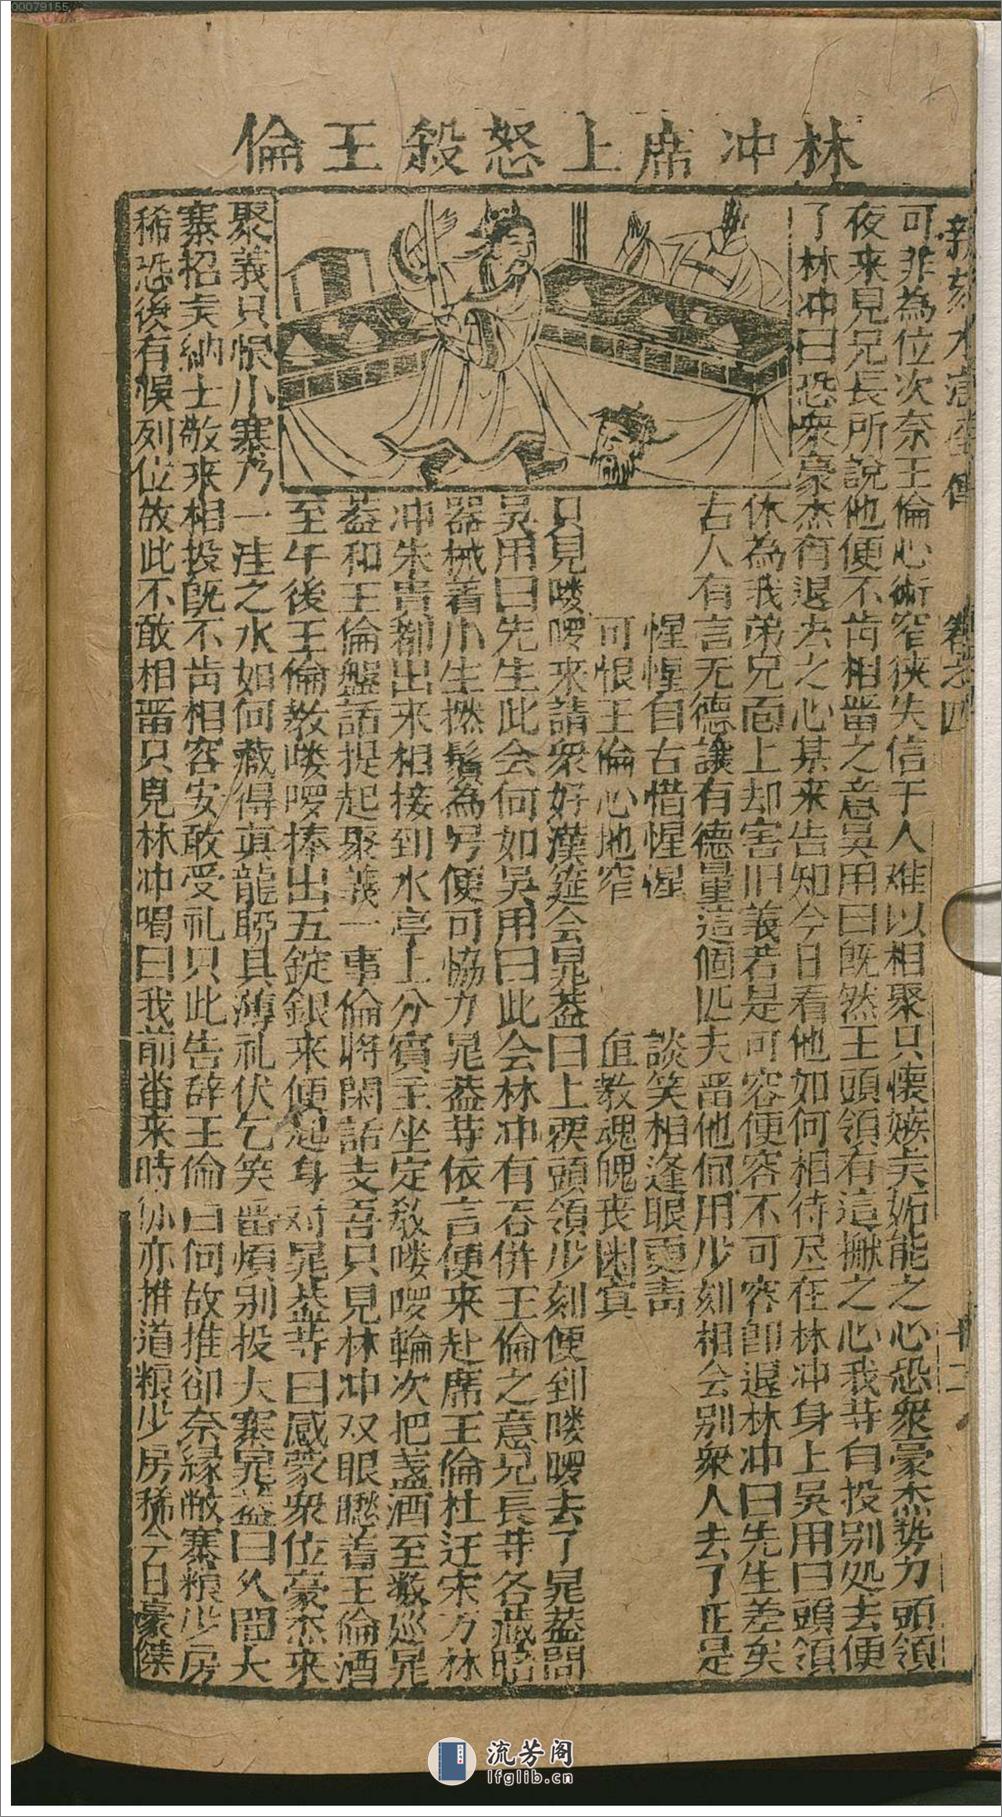 00079155
林冲席上怒殺王倫
可非為位次奈王倫心術窄狹失信于人难以相聚只懷嫉夫妬能之心恐衆豪杰势力頭領
夜来見兄長所說他便不肯相畱之意吳用曰既然王頭領有這㨨之心我荨自投别処去便
了林冲曰恐衆豪杰有退去之心某来告知今日看他如何相待尽在林冲身上吳用曰頭領
休為我弟兄面上却害旧義若是可容便容不可容即退林冲曰先生差矣
古人有言无德讓有德量這個匹夫畱他何用少刻相会别衆人去了正是
惺惺自古惜惺惺 談笑相逢眼更青
可恨王倫心地窄 直教魂魄丧幽冥
只見嘍啰来請衆好漢筵会晁盖曰上覆頭領少刻便到嘍啰去了晁盖問
吳用曰先生此会何如吳用曰此会林冲有吞併王倫之意兄長荨各藏暗
器械着小生撚鬚為号便可恊力晁盖荨依言便来赴席王倫杜迁宋万林
冲朱貴都出来相接到水亭上分賓主坐定教嘍啰輪次把盞酒至数廵晁
盖和王倫盤話提起聚義一事倫将閑話支吾只見林冲双眼瞅着王倫酒
至午後王倫教嘍啰捧出五錠銀来便起身对晁盖荨曰感蒙衆位豪杰来
聚義只恨小寨乃一洼之水如何藏得真龍聊具薄礼伏乞笑畱煩别投大寨晁盖曰久聞大
寨招夫納士敬来相投既不肯相容安敢受礼只此告辞王倫曰何故推卻奈緣敝寨粮少房
稀恐後有悮列位故此不敢相畱只見林冲喝曰我前畨来時你亦推道粮少房稀今日豪傑
卷之四
流芳阁
lfglib.cn